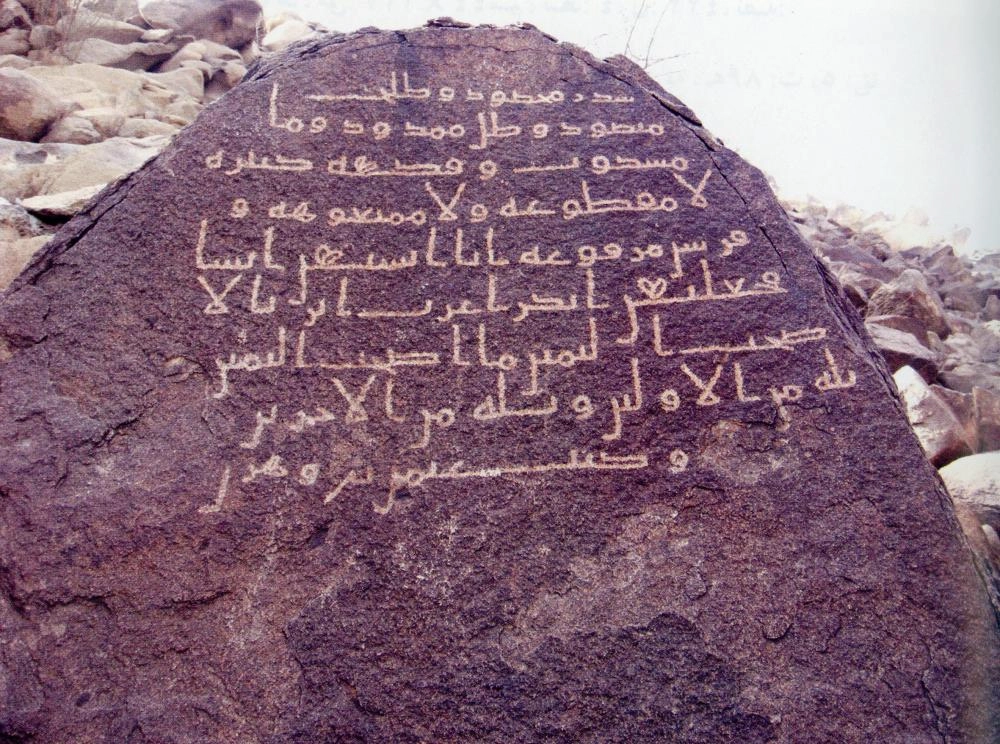 سدر مخضود وطلح
منضود وظل ممدود وما
مسكوب وفكهة كثيرة
لا مقطوعة ولا ممنوعة و
فرش مرفوعة انا انشانهن انشا
فجعلنهن ابكرا عربا اترابا لا
صحب اليمين ما اصحب اليمين
ثلة من الاولين وثلة من الاخرين
وكتب عثمن بن وهرن